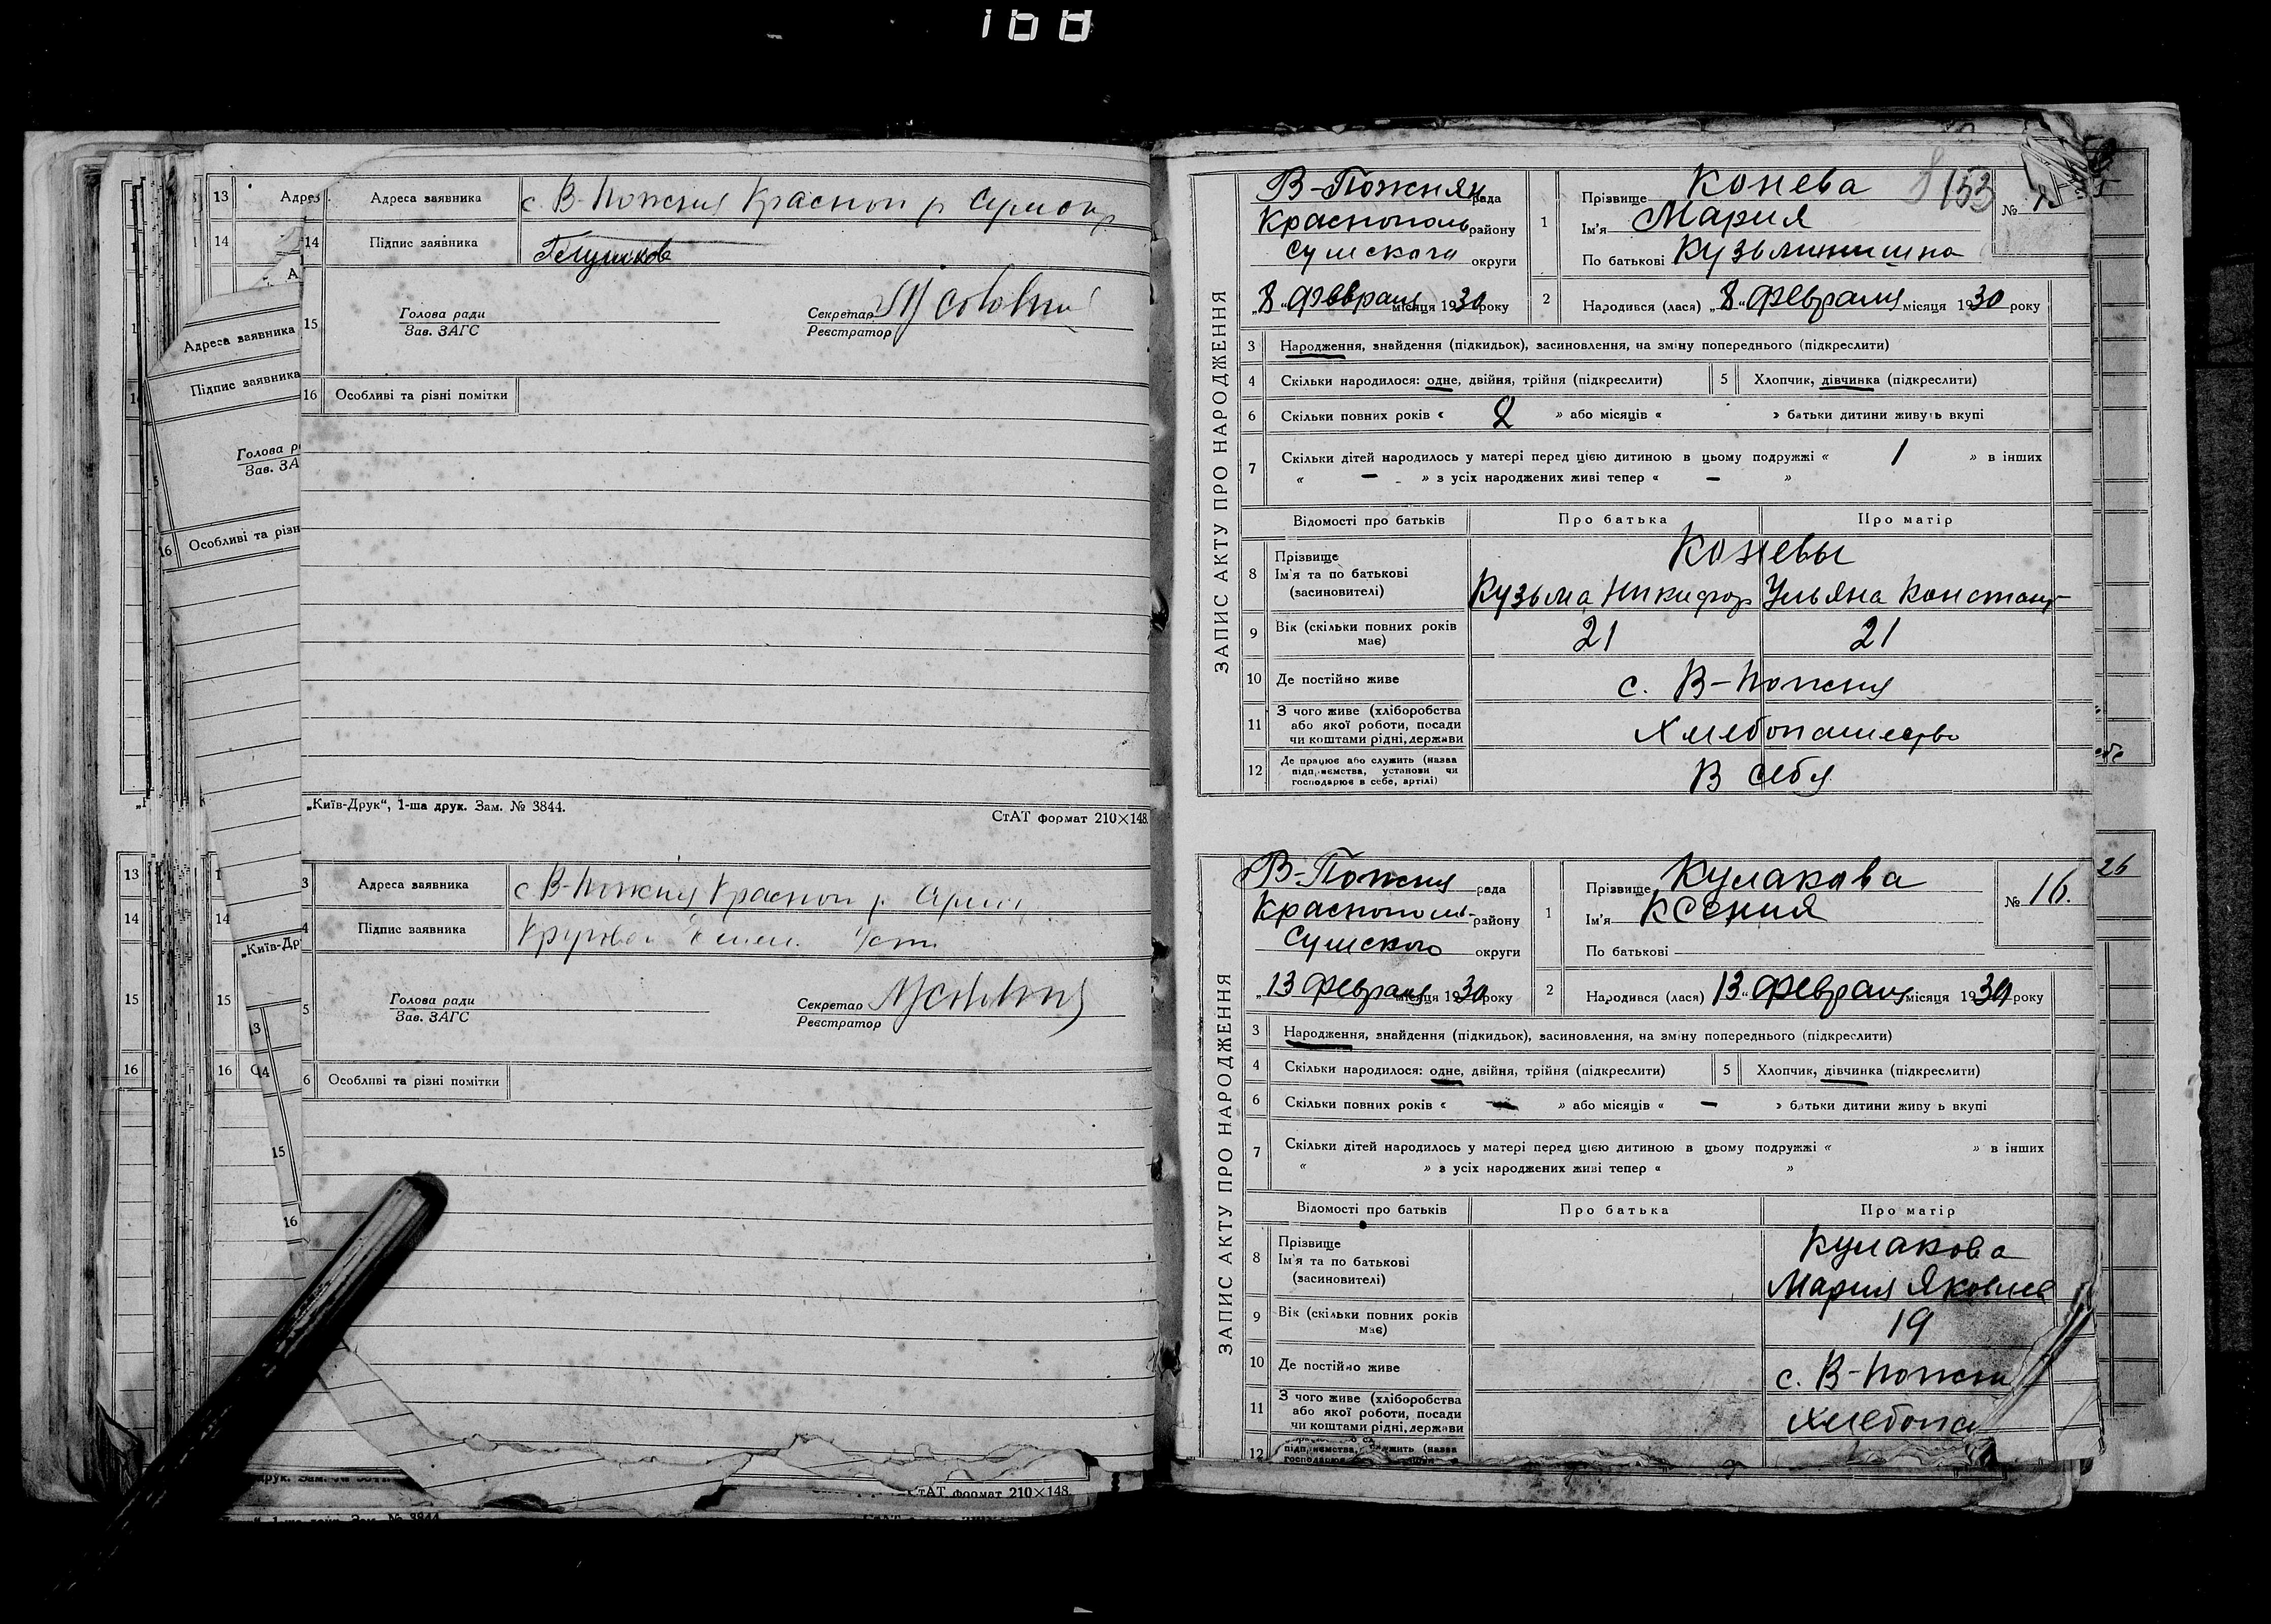 168
13 Адреса заявника с. В-Пожня Красноп р Сумок
14 Підпис заявника
15 Голова ради
Зав. ЗАГС
Секретар
Реєстратор
16 Особливі та різні помітки
„Київ-Друк“, 1-ша друк. Зам. № 3844.
СтАТ формат 210×148.
3 Адреса заявника с В-Пожня Красноп р. Сумск
4 Підпис заявника
5 Голова ради
Зав. ЗАГС
Секретар
Реєстратор
6 Особливі та різні помітки
СтАТ формат 210×148.
Адреса заявника
Підпис заявника
Голова р
Зав. ЗА
16 Особливі та різн
„Київ-Др
153
ЗАПИС АКТУ ПРО НАРОДЖЕННЯ
В-Пожнян рада
Краснополь району
Сумского округи
„8“ февраля місяця 1930 року
1 Прізвище Конева
Ім'я Мария
По батькові Кузьминишна
№
2 Народився (лася) „8“ февраля місяця 1930 року
3 Народження, знайдення (підкидьок), засиновлення, на зміну попереднього (підкреслити)
4 Скільки народилося: одне, двійня, трійня (підкреслити) 5 Хлопчик, дівчинка (підкреслити)
6 Скільки повних років « 2 » або місяців « » батьки дитини живуть вкупі
7 Скільки дітей народилось у матері перед цією дитиною в цьому подружжі « 1 » в інших
« — » з усіх народжених живі тепер « — »
Відомості про батьків Про батька Про матір
8 Прізвище Коневы
Ім'я та по батькові
(засиновителі) Кузьма Никифор Ульяна Констант
9 Вік (скільки повних років має) 21 21
10 Де постійно живе с. В-Пожня
11 З чого живе (хліборобства
або якої роботи, посади
чи коштами рідні, держави Хлебопашество
12 Де працює або служить (назва
підприємства, установи чи
господарює в себе, артілі) В себя
ЗАПИС АКТУ ПРО НАРОДЖЕННЯ
В-Пожня рада
Краснополь району
Сумского округи
„13 февраля місяця 1930 року
1 Прізвище Кулакова
Ім'я Ксения
По батькові
№ 16.
2 Народився (лася) 13“ февраля місяця 1930 року
3 Народження, знайдення (підкидьок), засиновлення, на зміну попереднього (підкреслити)
4 Скільки народилося: одне, двійня, трійня (підкреслити) 5 Хлопчик, дівчинка (підкреслити)
6 Скільки повних років « — » або місяців « — » батьки дитини живу ь вкупі
7 Скільки дітей народилось у матері перед цією дитиною в цьому подружжі « » в інших
« » з усіх народжених живі тепер « »
Відомості про батьків Про батька Про матір
8 Прізвище Кулакова
Ім'я та по батькові
(засиновителі) Мария Яковлев
9 Вік (скільки повних років має) 19
10 Де постійно живе с. В-Пожня
11 З чого живе (хліборобства
або якої роботи, посади
чи коштами рідні, держави Хлебопа
12 підприємства, служить (назва
26